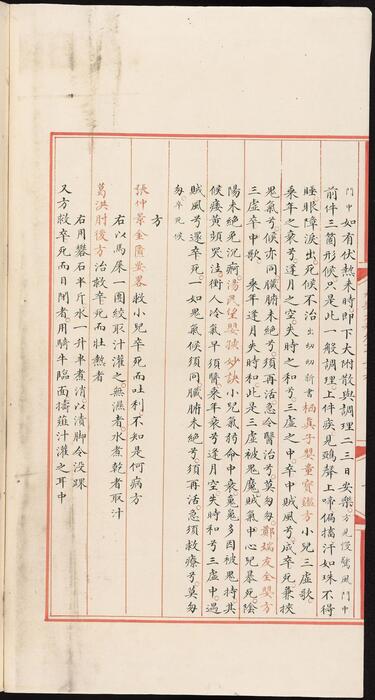 門中如有伏熱來時即下大附散與調理二三日安樂方見慢驚風門中
前件三箇形候只是此一般調理上件疾見鵶聲上啼偏搐汗如珠不得
睡眼障淚出死候不治出切切新書栖真子嬰童寶鑑方小兒三虛歌
乘年之衰兮逢月之空失時之和兮三虛之中卒中賊風兮成卒死兼挾
鬼氣兮候亦同臟腑未絶兮須再活急令醫治兮莫匆匆鄭端友全嬰方
三虛卒中歌 乘年逢月失時和此是三虛被鬼魔賊氣中心兒暴死陰
陽未絶免沉痾湯民望嬰孩妙訣小兒氣弱命中衰魂魄多因被鬼持其
候痿黃頻哭泣衝人冷氣早須醫乘年衰兮逢月空失時和兮三虛中遇
賊風兮遝卒死一如鬼氣候須同臟腑未絶兮須再活急須救療兮莫匆
匆卒死候
方
張仲景金匱要畧救小兒卒死而吐利不知是何病方
右以馬屎一團絞取汁灌之無濕者水煮乾者取汁
葛洪肘後方治救卒死而壯熱者
右用礬石半斤水一升半煮消以漬脚令没踝
又方救卒死而目閉者用騎牛臨面擣薤汁灌之耳中